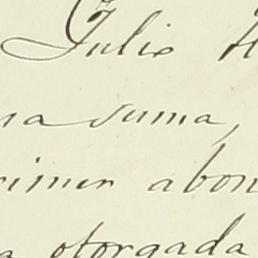 Julio H
na suma,
rimer abon
a otorgada